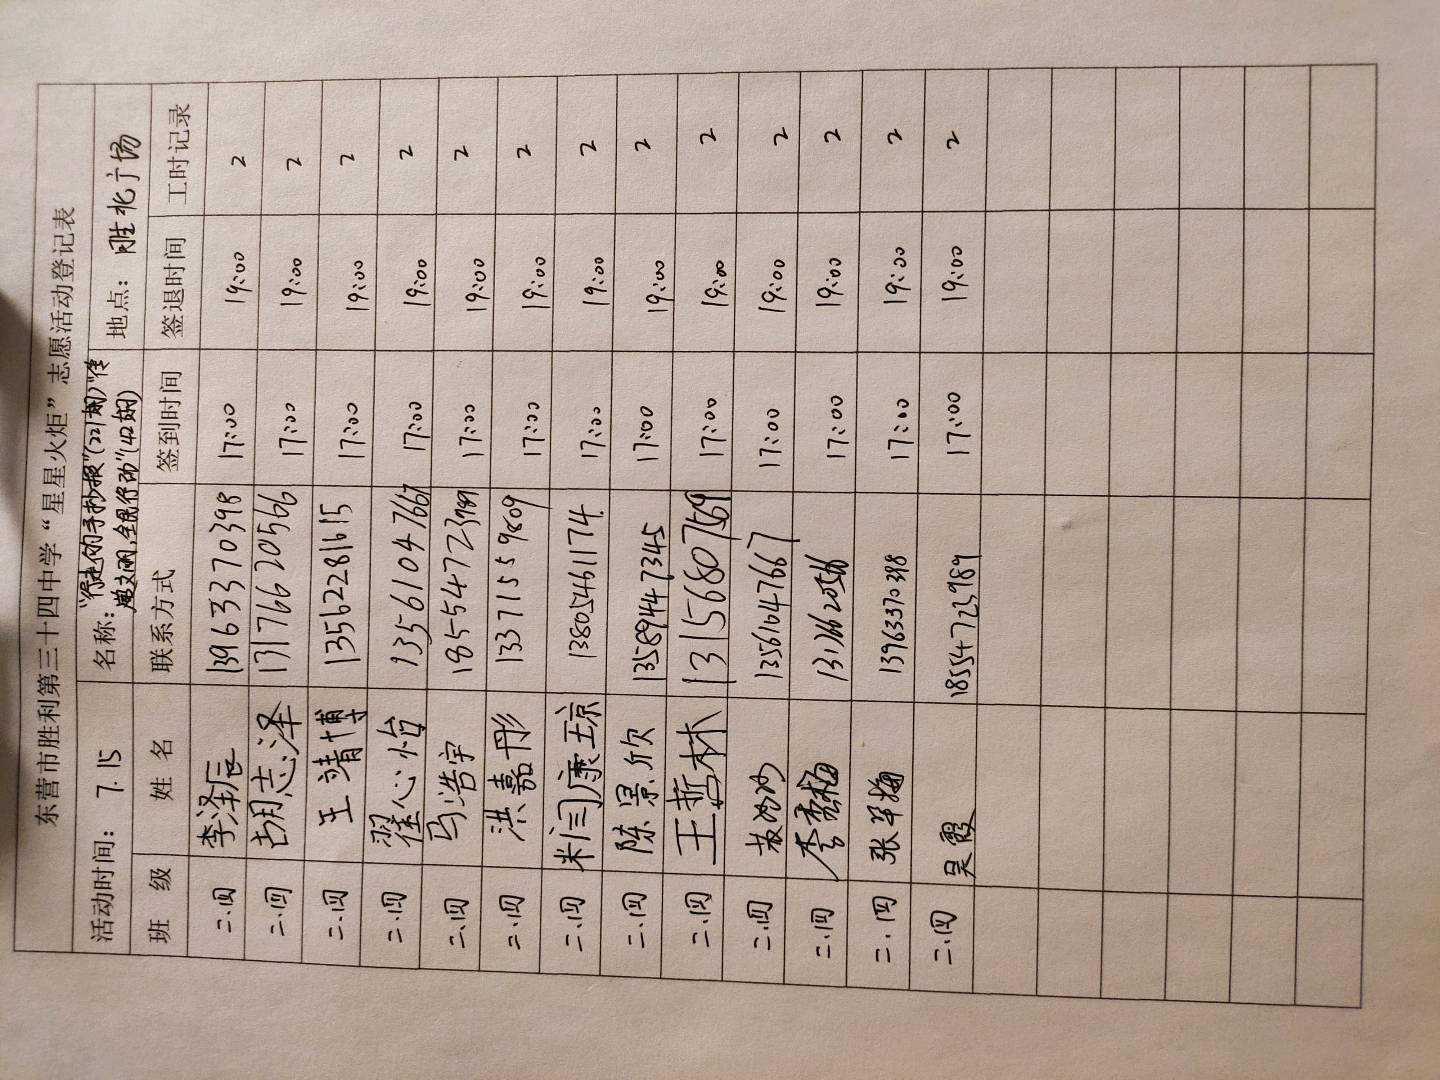 东营市胜利第三十四中学“星星火炬”志愿活动登记表
活动时间: 7.15 名称: “行走的手抄报”(221期)“传 地点: 胜北广场
文明,全民行动”(42期)
班 级 姓 名 联系方式 签到时间 签退时间 工时记录
二.四 李泽辰 13963370398 17:00 19:00 2
二.四 胡志泽 13176620566 17:00 19:00 2
二.四 王靖博 13562281615 17:00 19:00 2
二.四 翟心怡 13561047667 17:00 19:00 2
二.四 马浩宇 18554723989 17:00 19:00 2
二.四 洪嘉彤 13371559809 17:00 19:00 2
二.四 闫康琼 13805461174 17:00 19:00 2
二.四 陈景欣 13589447345 17:00 19:00 2
二.四 王哲林 13156807569 17:00 19:00 2
二.四 13561047667 17:00 19:00 2
二.四 李秀梅 17:00 19:00 2
二.四 张 梅 13963370398 17:00 19:00 2
二.四 吴霞 18554723989 17:00 19:00 2